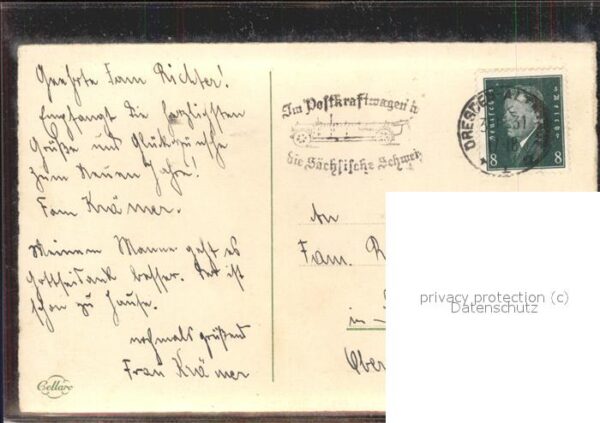 Geehrte Fam Richter!
Empfangt die herzlichsten
Grüße und Glückwünsche
zum Neuen Jahre!
Fam Krämer.
Meinem Manne geht es
Gottseidank besser. Er ist
schon zu Hause.
nochmals grüßend
Frau Krämer
Cellaro
Im Postkraftwagen in
die Sächsische Schweiz
DRESDEN
Deutsches Reich
8 8
An
Fam. R
in
Ober
privacy protection (c)
Datenschutz